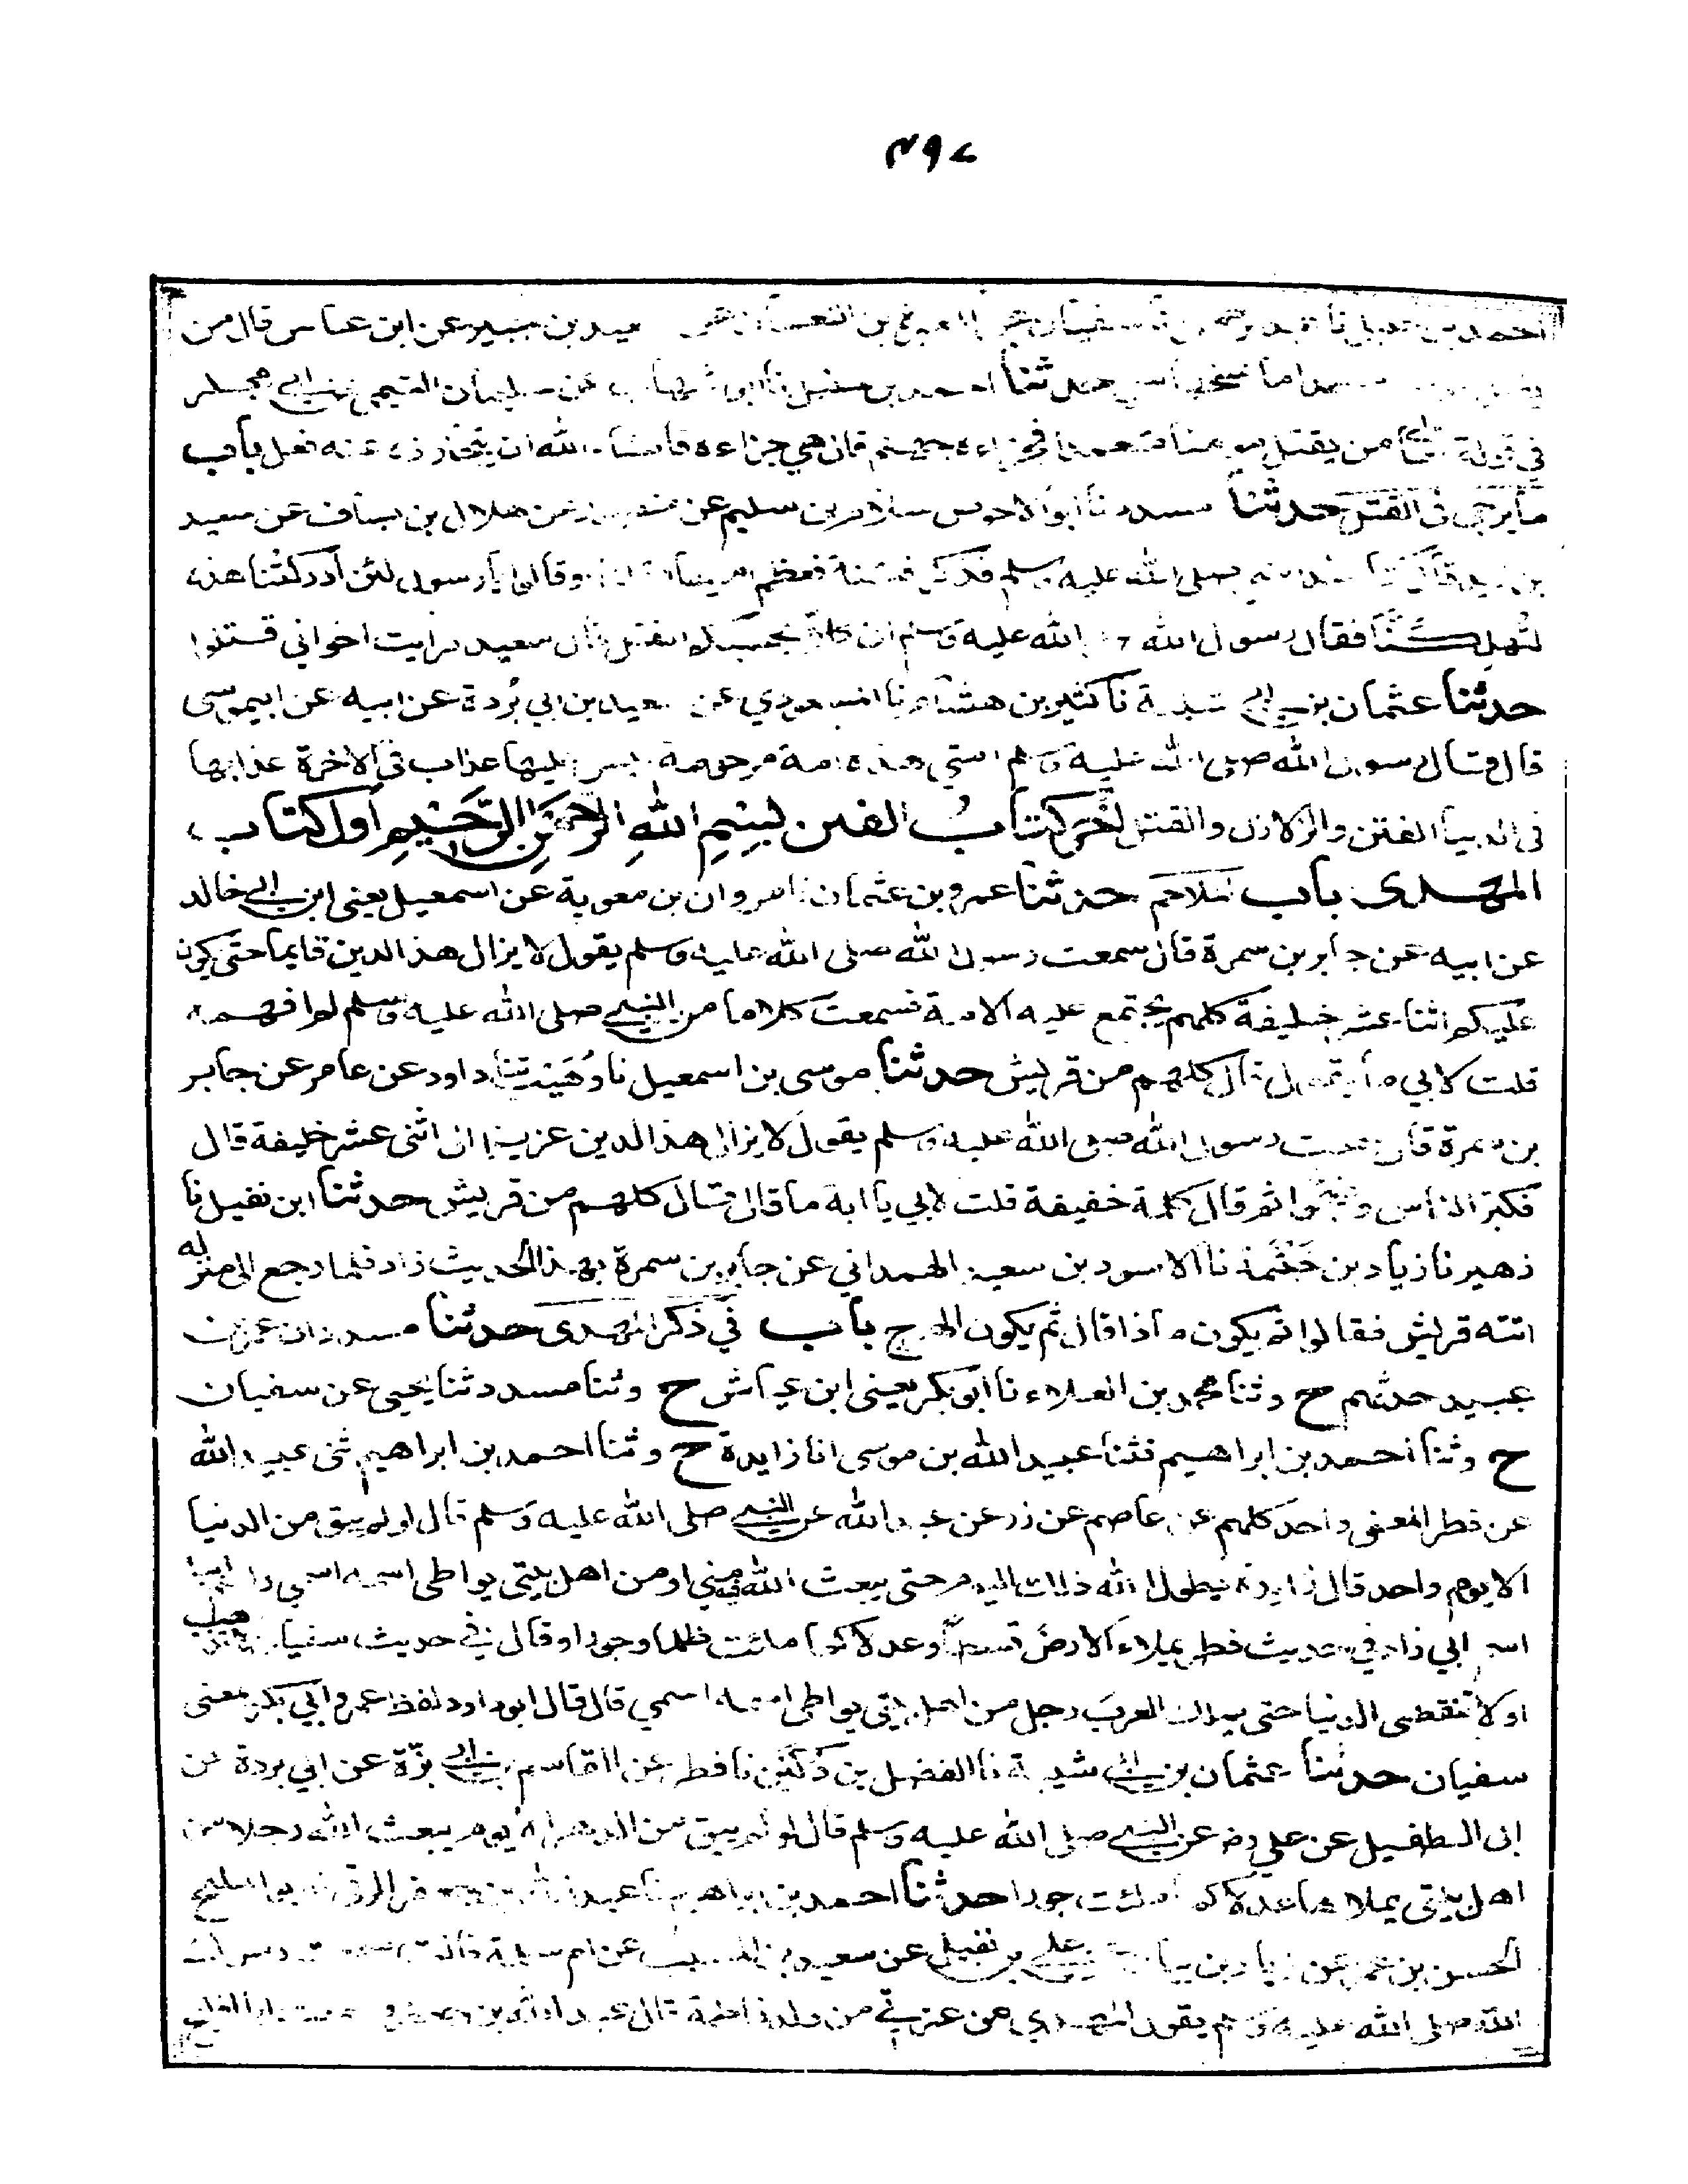 احمد بن حنبل نا عبد الرحمن نا سفيان عن المغيرة بن النعمان عن سعيد بن جبير عن ابن عباس قال من
ما نسخها شيء حدثنا احمد بن حنبل نا ابو شهاب عن سليمان التيمي عن ابي مجلز
في قوله تعالى من يقتل مومنا متعمدا فجزاءه جهنم قال هي جزاءه فان شاء الله ان يتجاوز عنه فعل باب
ما يرجى في القتل حدثنا مسدد نا ابو الاحوص سلام بن سليم عن منصور عن هلال بن يساف عن سعيد
بن زيد قال كنا عند النبي صلى الله عليه وسلم فذكر فتنة فعظم امرها فقلنا او قالوا يا رسول لئن ادركتنا هذه
لتهلكنا فقال رسول الله صلى الله عليه وسلم ان بحسبكم القتل قال سعيد فرايت اخواني قتلوا
حدثنا عثمان بن ابي شيبة نا كثير بن هشام نا المسعودي عن سعيد بن ابي بردة عن ابيه عن ابي موسى
قال قال رسول الله صلى الله عليه وسلم امتي هذه امة مرحومة ليس عليها عذاب في الاخرة عذابها
في الدنيا الفتن والزلازل والقتل اخر كتاب الفتن بسم الله الرحمن الرحيم اول كتاب
المهدى باب الملاحم حدثنا عمرو بن عثمان نا مروان بن معوية عن اسمعيل يعنى ابن ابي خالد
عن ابيه عن جابر بن سمرة قال سمعت رسول الله صلى الله عليه وسلم يقول لا يزال هذا الدين قايما حتى يكون
عليكم اثنا عشر خليفة كلهم يجتمع عليه الامة فسمعت كلاما من النبي صلى الله عليه وسلم لم افهمه
قلت لابي ما يقول قال كلهم من قريش حدثنا موسى بن اسمعيل نا وهيب ثنا داود عن عامر عن جابر
بن سمرة قال سمعت رسول الله صلى الله عليه وسلم يقول لا يزال هذا الدين عزيزا الى اثنى عشر خليفة قال
فكبر الناس وضجوا ثم قال كلمة خفيفة قلت لابي يا ابة ما قال قال كلهم من قريش حدثنا ابن نفيل نا
زهير نا زياد بن خيثمة نا الاسود بن سعيد الهمداني عن جابر بن سمرة بهذا الحديث زاد فلما رجع الى منزله
اتته قريش فقالوا ثم يكون ماذا قال ثم يكون الهرج باب في ذكر المهدى حدثنا مسدد ان عمر بن
عبيد حدثهم ح وثنا محمد بن العلاء نا ابو بكر يعنى ابن عياش ح وثنا مسدد ثنا يحيى عن سفيان
ح وثنا احمد بن ابراهيم نثنا عبيد الله بن موسى انا زايدة ح وثنا احمد بن ابراهيم ثنى عبيد الله
عن فطر المعنى واحد كلهم عن عاصم عن زر عن عبد الله عن النبي صلى الله عليه وسلم قال لو لم يبق من الدنيا
الا يوم واحد قال زايدة ليطول الله ذلك اليوم حتى يبعث الله فيه مني او من اهل بيتي يواطى اسمه اسمي واسم ابيه
اسم ابي زاد في حديث فطر يملاء الارض قسطا وعدلا كما ملئت ظلما وجورا وقال في حديث سفيان لا تذهب
او لا تنقضى الدنيا حتى يملك العرب رجل من اهل بيتي يواطى اسمه اسمي قال قال ابو داود لفظ عمر وابي بكر بمعنى
سفيان حدثنا عثمان بن ابي شيبة نا الفضل بن دكين نا فطر عن القاسم بن ابي بزة عن ابي بردة عن
ابى الطفيل عن علي رض عن النبي صلى الله عليه وسلم قال لو لم يبق من الدهر الا يوم يبعث الله رجلا من
اهل بيتي يملاها عدلا كما ملئت جورا حدثنا احمد بن ابراهيم نا عبد الله بن جعفر الرقي نا ابو المليح
الحسن بن عمر عن زياد بن بيان عن علي بن نفيل عن سعيد بن المسيب عن ام سلمة قالت سمعت رسول
الله صلى الله عليه وسلم يقول المهدي من عترتي من ولد فاطمة قال عبد الله بن جعفر وسمعت ابا المليح